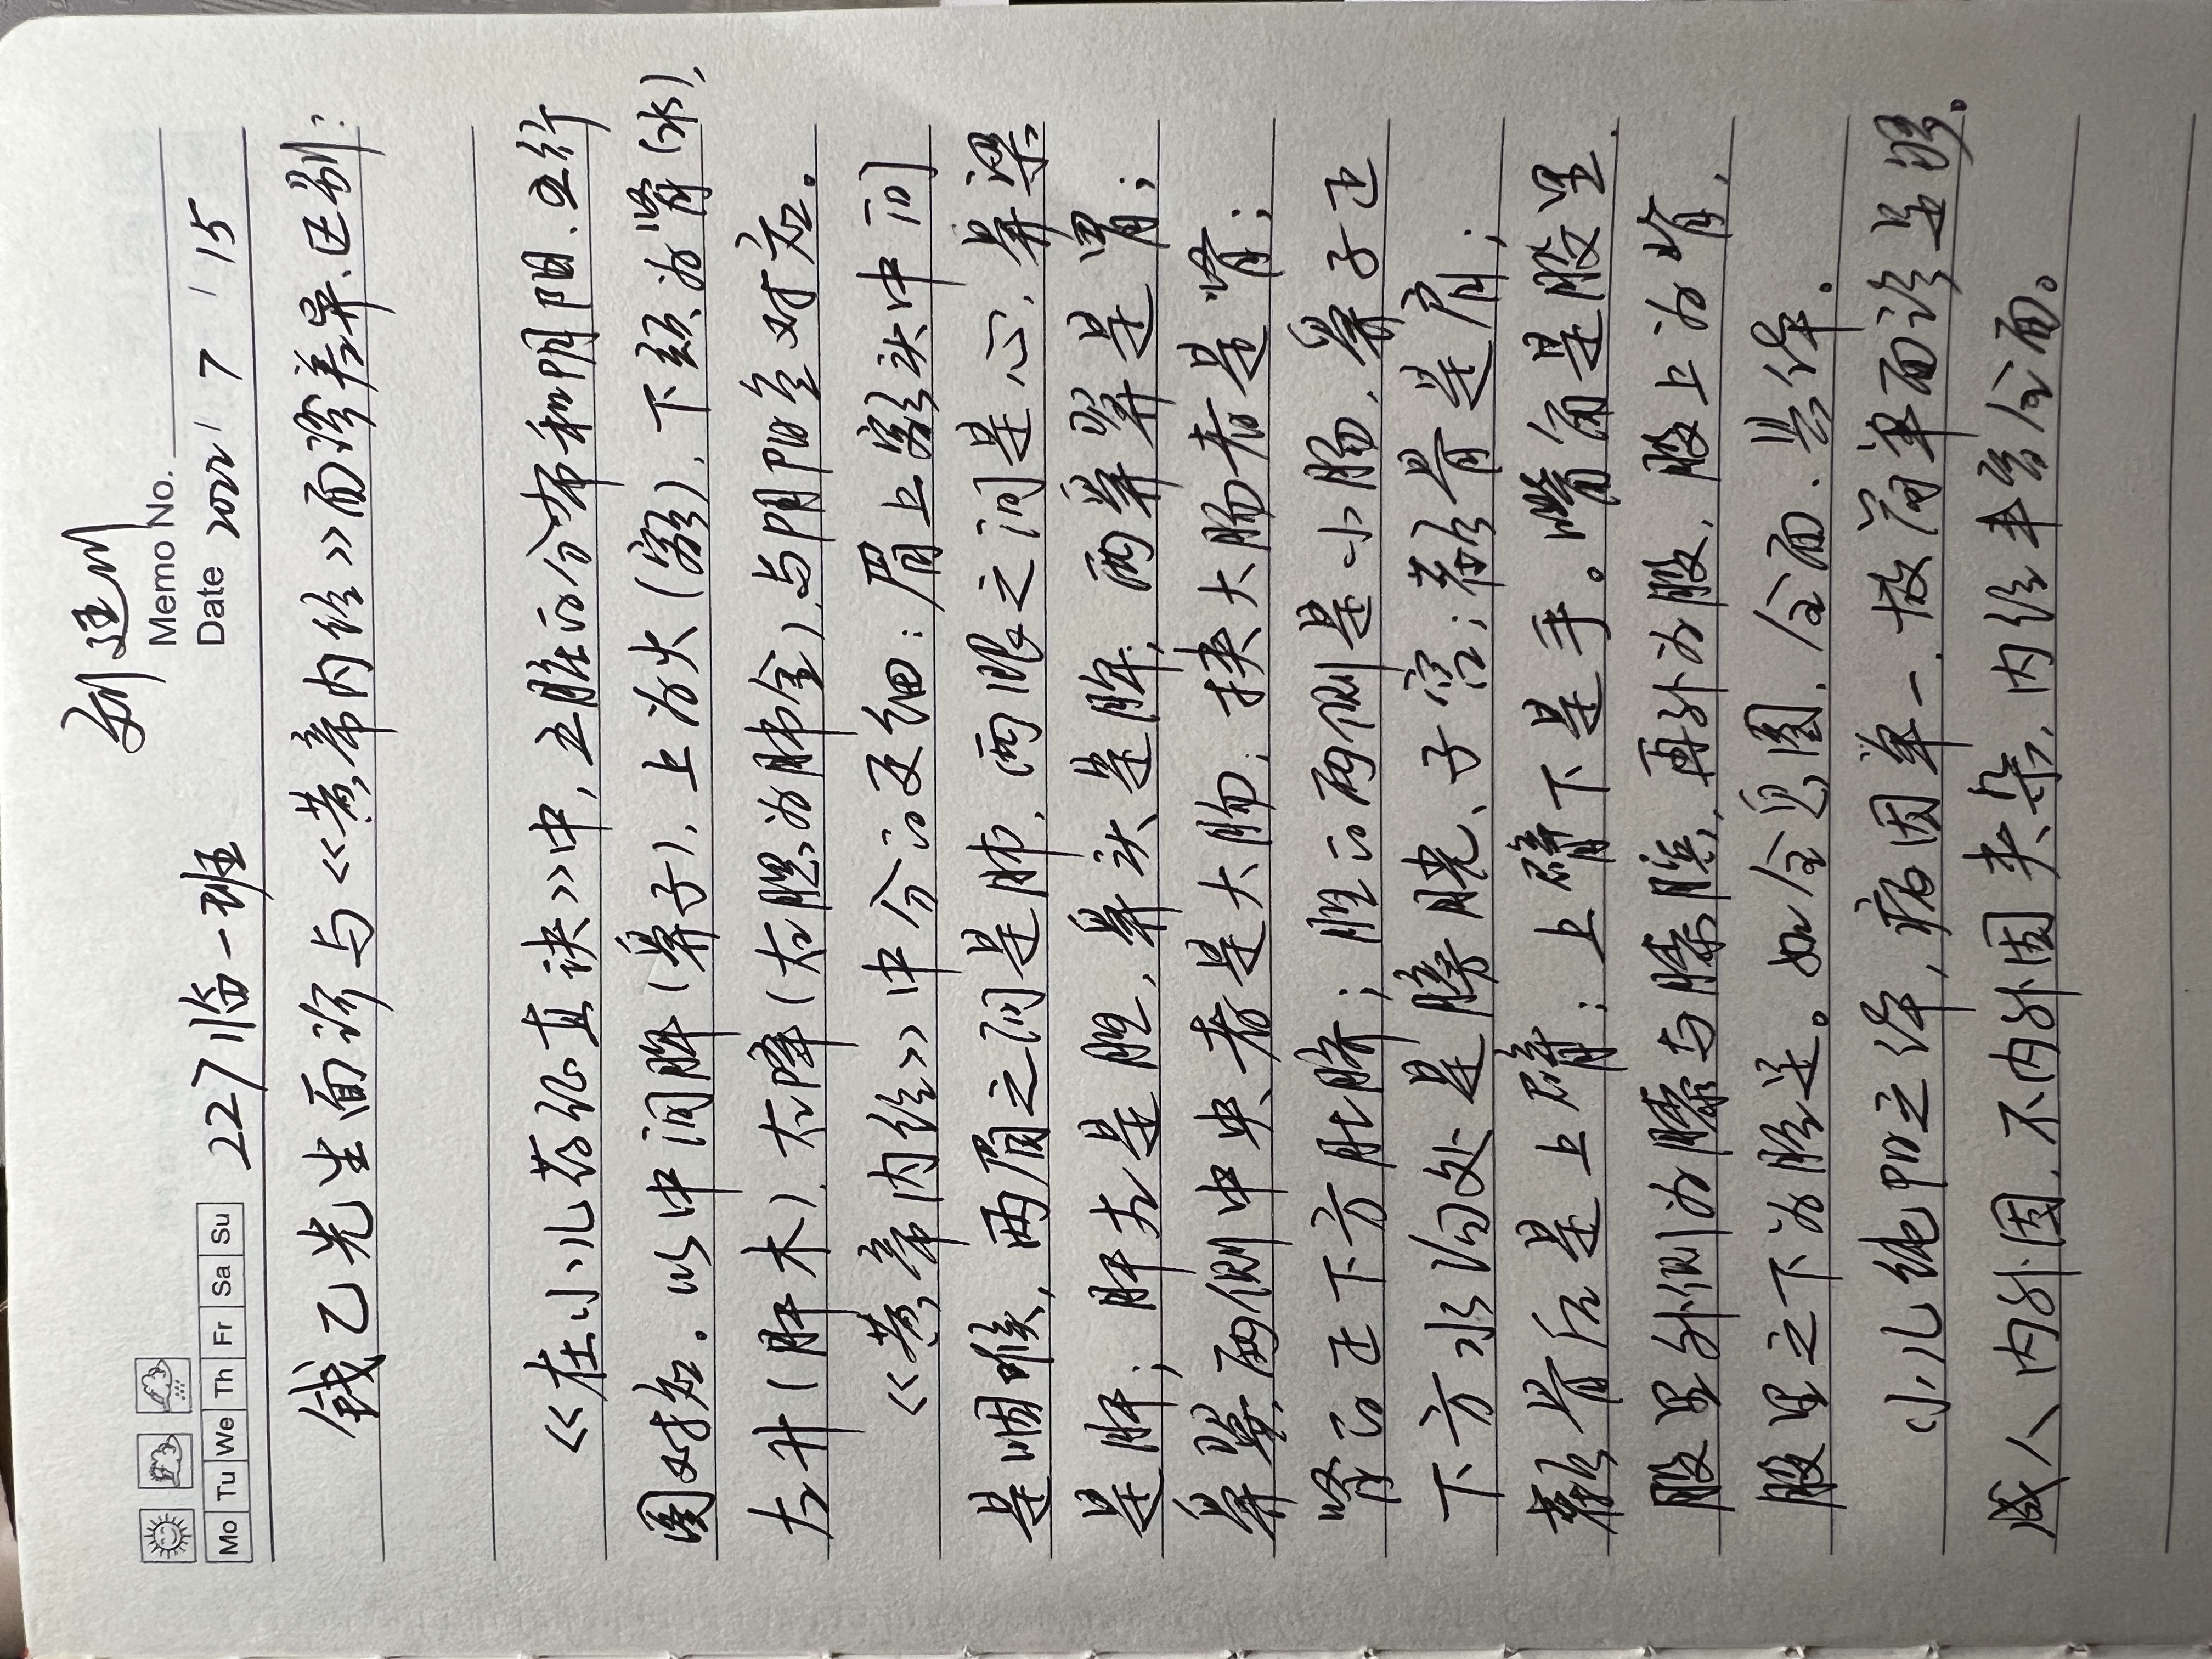 刘廷川
Memo No.
Mo Tu We Th Fr Sa Su 227临一班 Date 2022 / 7 / 15
钱乙先生面诊与《黄帝内经》面诊差异、区别:
《在小儿药证直诀》中,五脏的分布和阴阳、五行
图对应。以中间脾(鼻子),上为火(额),下颏为肾(水),
左升(肝木),右降(右腮为肺金),与阴阳全对应。
《黄帝内经》中分的更细:眉上额头中间
是咽喉,两眉之间是肺,两眼之间是心,鼻梁
是肝;肝左是胆,鼻头是脾,两鼻翼是胃;
鼻翼两侧中央者是大肠,挟大肠者是肾;
肾的正下方肚脐;胆的两侧是小肠,鼻子正
下方水沟处是膀胱、子宫;颧骨是肩;
颧骨后是上臂;上臂下是手。嘴角是股里,
股里外侧为膝与膝膑,再外为股,股上为肾,
股里之下为胫足。如全息图,全面、具体。
小儿纯阳之体,病因单一,故简单面诊足够。
成人内外因,不内外因夹杂,内经丰富全面。